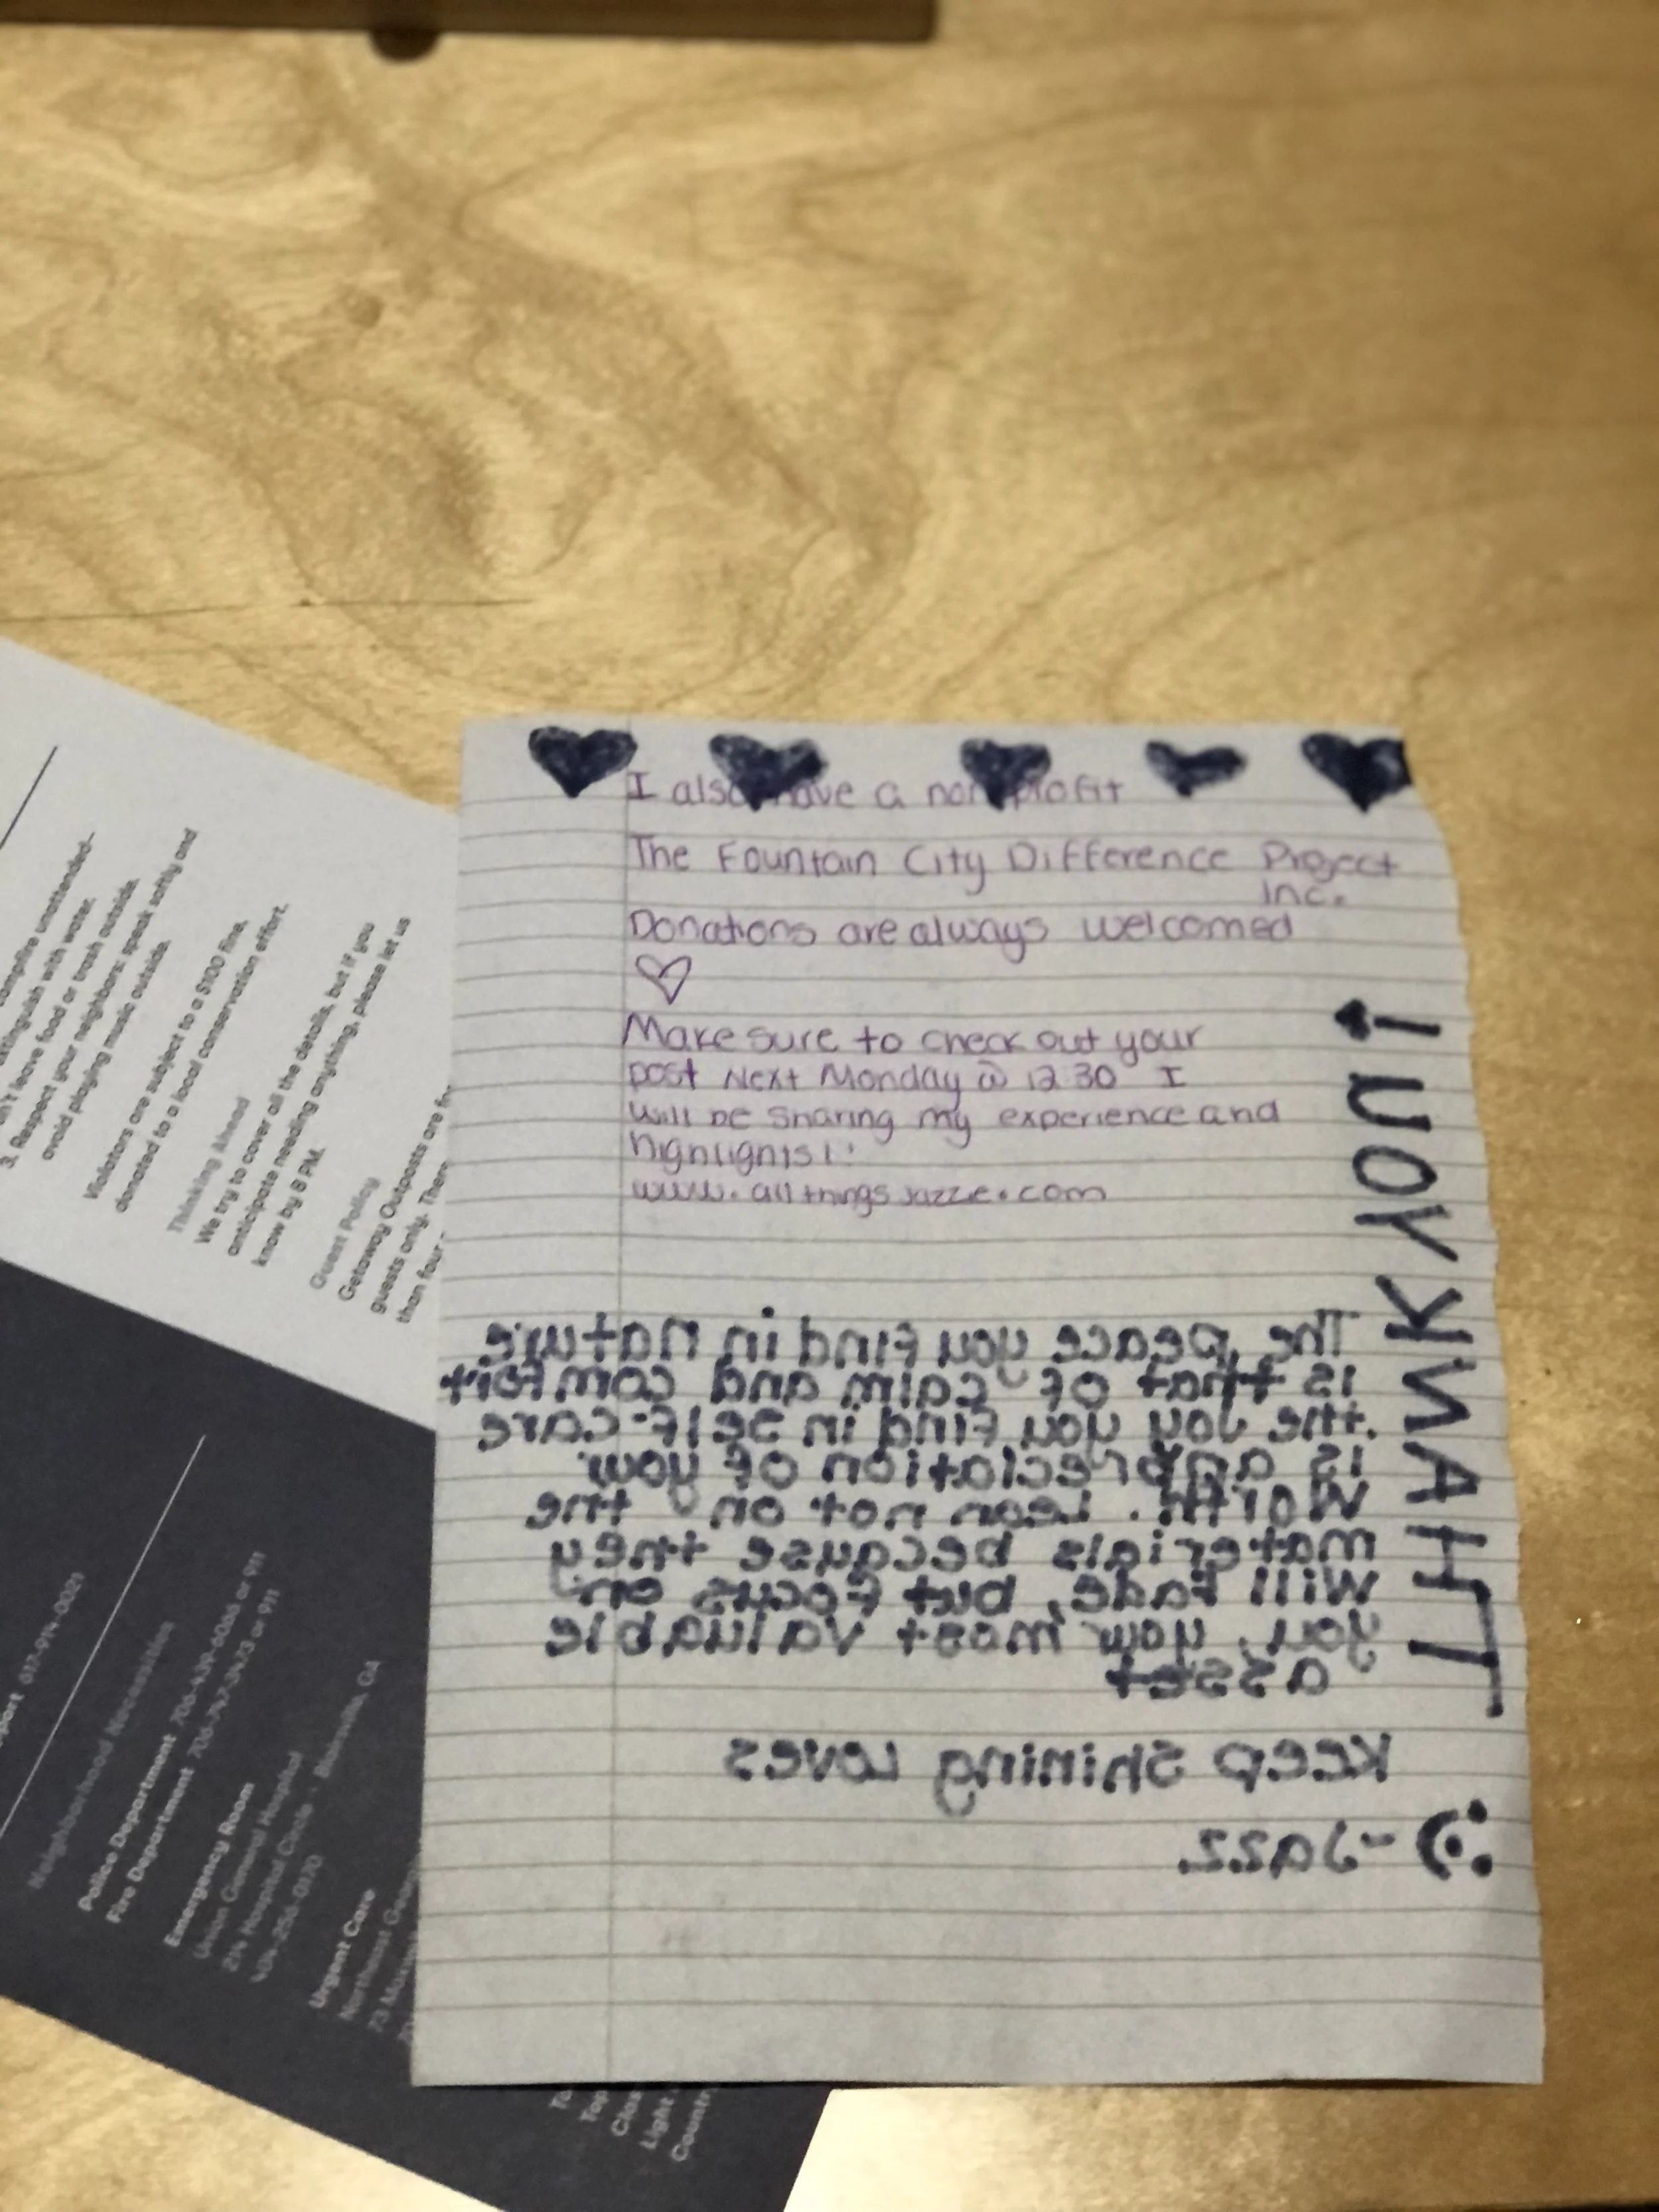 I also have a nonprofit
The Fountain City Difference Project
Inc.
Donations are always welcomed
Make sure to check out your
post Next Monday @ 12:30 I
will be sharing my experience and
highlights!!
www.allthingsjazze.com
THANK YOU!
The peace you find in nature
is that of calm and comfort
the joy you find in self-care
is appreciation of your
Worth. Lean not on the
materials because they
will fade, but focus on
you, your most valuable
asset
Keep Shining Loves
-Jazz
campfire unattended-
extinguish with water.
n't leave food or trash outside.
3. Respect your neighbors: speak softly and
avoid playing music outside.
Violators are subject to a $100 fine,
donated to a local conservation effort.
Thinking Ahead
We try to cover all the details, but if you
anticipate needing anything, please let us
know by 8 PM.
Guest Policy
Getaway Outposts are for
guests only. There
than four
port 617-914-0021
Neighborhood Necessities
Police Department 706-439-6066 or 911
Fire Department or 911
Emergency Room
Union General Hospital
Hospital Circle · Blairsville, GA
Urgent Care
Northeast
73
Clos
Light
Country